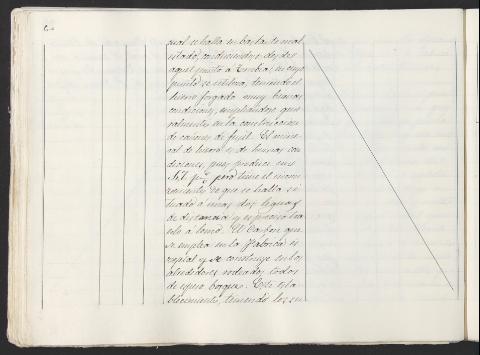 cual se halla en bastante mal
estado, conduciendose desde
aquel punto a
punto se
hierro forgado muy buenas
condiciones, empleandose gene
ralmente en la construccion
de cañones de fusil. El mine
ral de hierro es de buenas con
diciones, pues produce un
pero tiene el incon
veniente de que se halla si
tuado a unas dos leguas
de distancia y es preciso tra
erlo a lomo. El Carbon que
se emplea en la Fabrica es
vegetal y se construye en los
alrededores rodeados todos
de espeso bosque. Este esta
blecimiento, teniendo los en